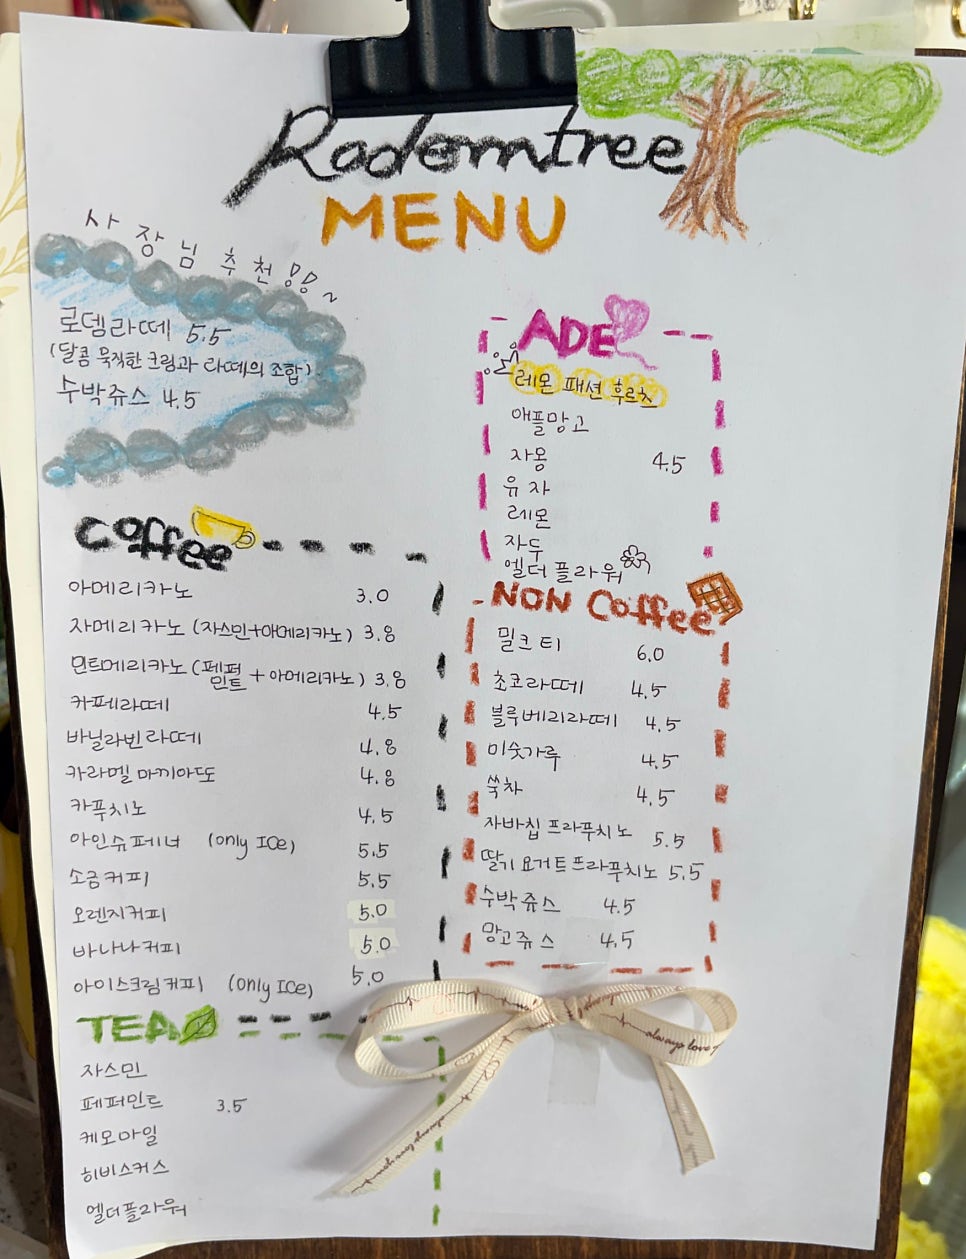 Rodemtree
MENU
사장님 추천 메뉴~
로뎀라떼 5.5
(달콤 묵직한 크림과 라떼의 조합)
수박쥬스 4.5
Coffee
아메리카노 3.0
자메리카노 (자스민+아메리카노) 3.8
민트메리카노 (펩퍼민트 + 아메리카노) 3.8
카페라떼 4.5
바닐라빈라떼 4.8
카라멜 마끼아또 4.8
카푸치노 4.5
아인슈페너 (only ICe) 5.5
소금커피 5.5
오렌지커피 5.0
바나나커피 5.0
아이스크림커피 (only ICe) 5.0
TEA
자스민
페퍼민트 3.5
케모마일
히비스커스
엘더플라워
ADE
레몬 패션 후르츠
애플망고
자몽 4.5
유자
레몬
자두
엘더플라워
NON Coffee
밀크티 6.0
초코라떼 4.5
블루베리라떼 4.5
미숫가루 4.5
쑥차 4.5
자바칩 프라푸치노 5.5
딸기 요거트프라푸치노 5.5
수박쥬스 4.5
망고쥬스 4.5
always love